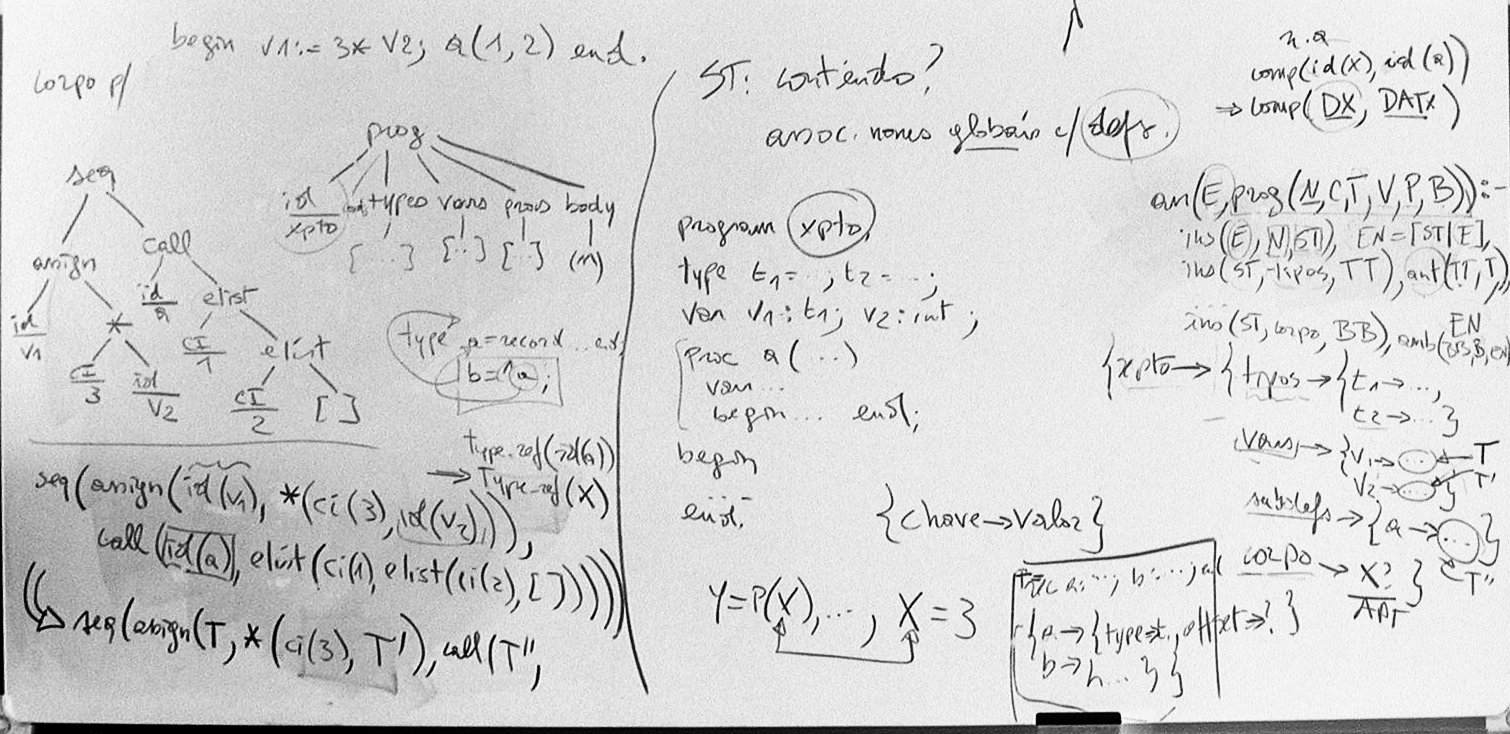 begin v1:= 3* v2; a(1,2) end.
corpo p/
seq
assign call
id
v1
*
id
a
elist
CI
3
id
v2
CI
1
elist
CI
2
[ ]
prog
id
xpto
types vars procs body
[...] [...] [...] (n)
type a=record... end
b=↑a;
type_ref(id(a))
→ type_ref(X)
seq(assign(id(v1), *(ci(3), id(v2))),
call(id(a), elist(ci(1), elist(ci(2), [ ])))))
seq(assign(T, *(ci(3), T'), call(T'',
ST: conteúdo?
assoc. nomes globais c/ defs.
program xpto,
type t1=..., t2=...;
var v1:t1; v2:int;
proc a(...)
var...
begin... end;
begin
end.
{chave→valor}
Y=P(X),..., X=3
a:..., b:...,
{a→{type→t, offset→?}
b→h...}}
n.a
comp(id(X), id(a))
⇒comp(DX, DATX)
an(E,prog(N,C,T,V,P,B)):-
ins(E,N,ST), EN=[ST|E],
ins(ST,tipos,TT), ant(TT,T),
ins(ST,corpo,BB), amb(BB,B,EN)
EN
{xpto→{tipos→{t1→...,
t2→...}
vars→{v1→... ←T
v2→...} T'
subdefs→{a→...}
T''
corpo→X?}
APT